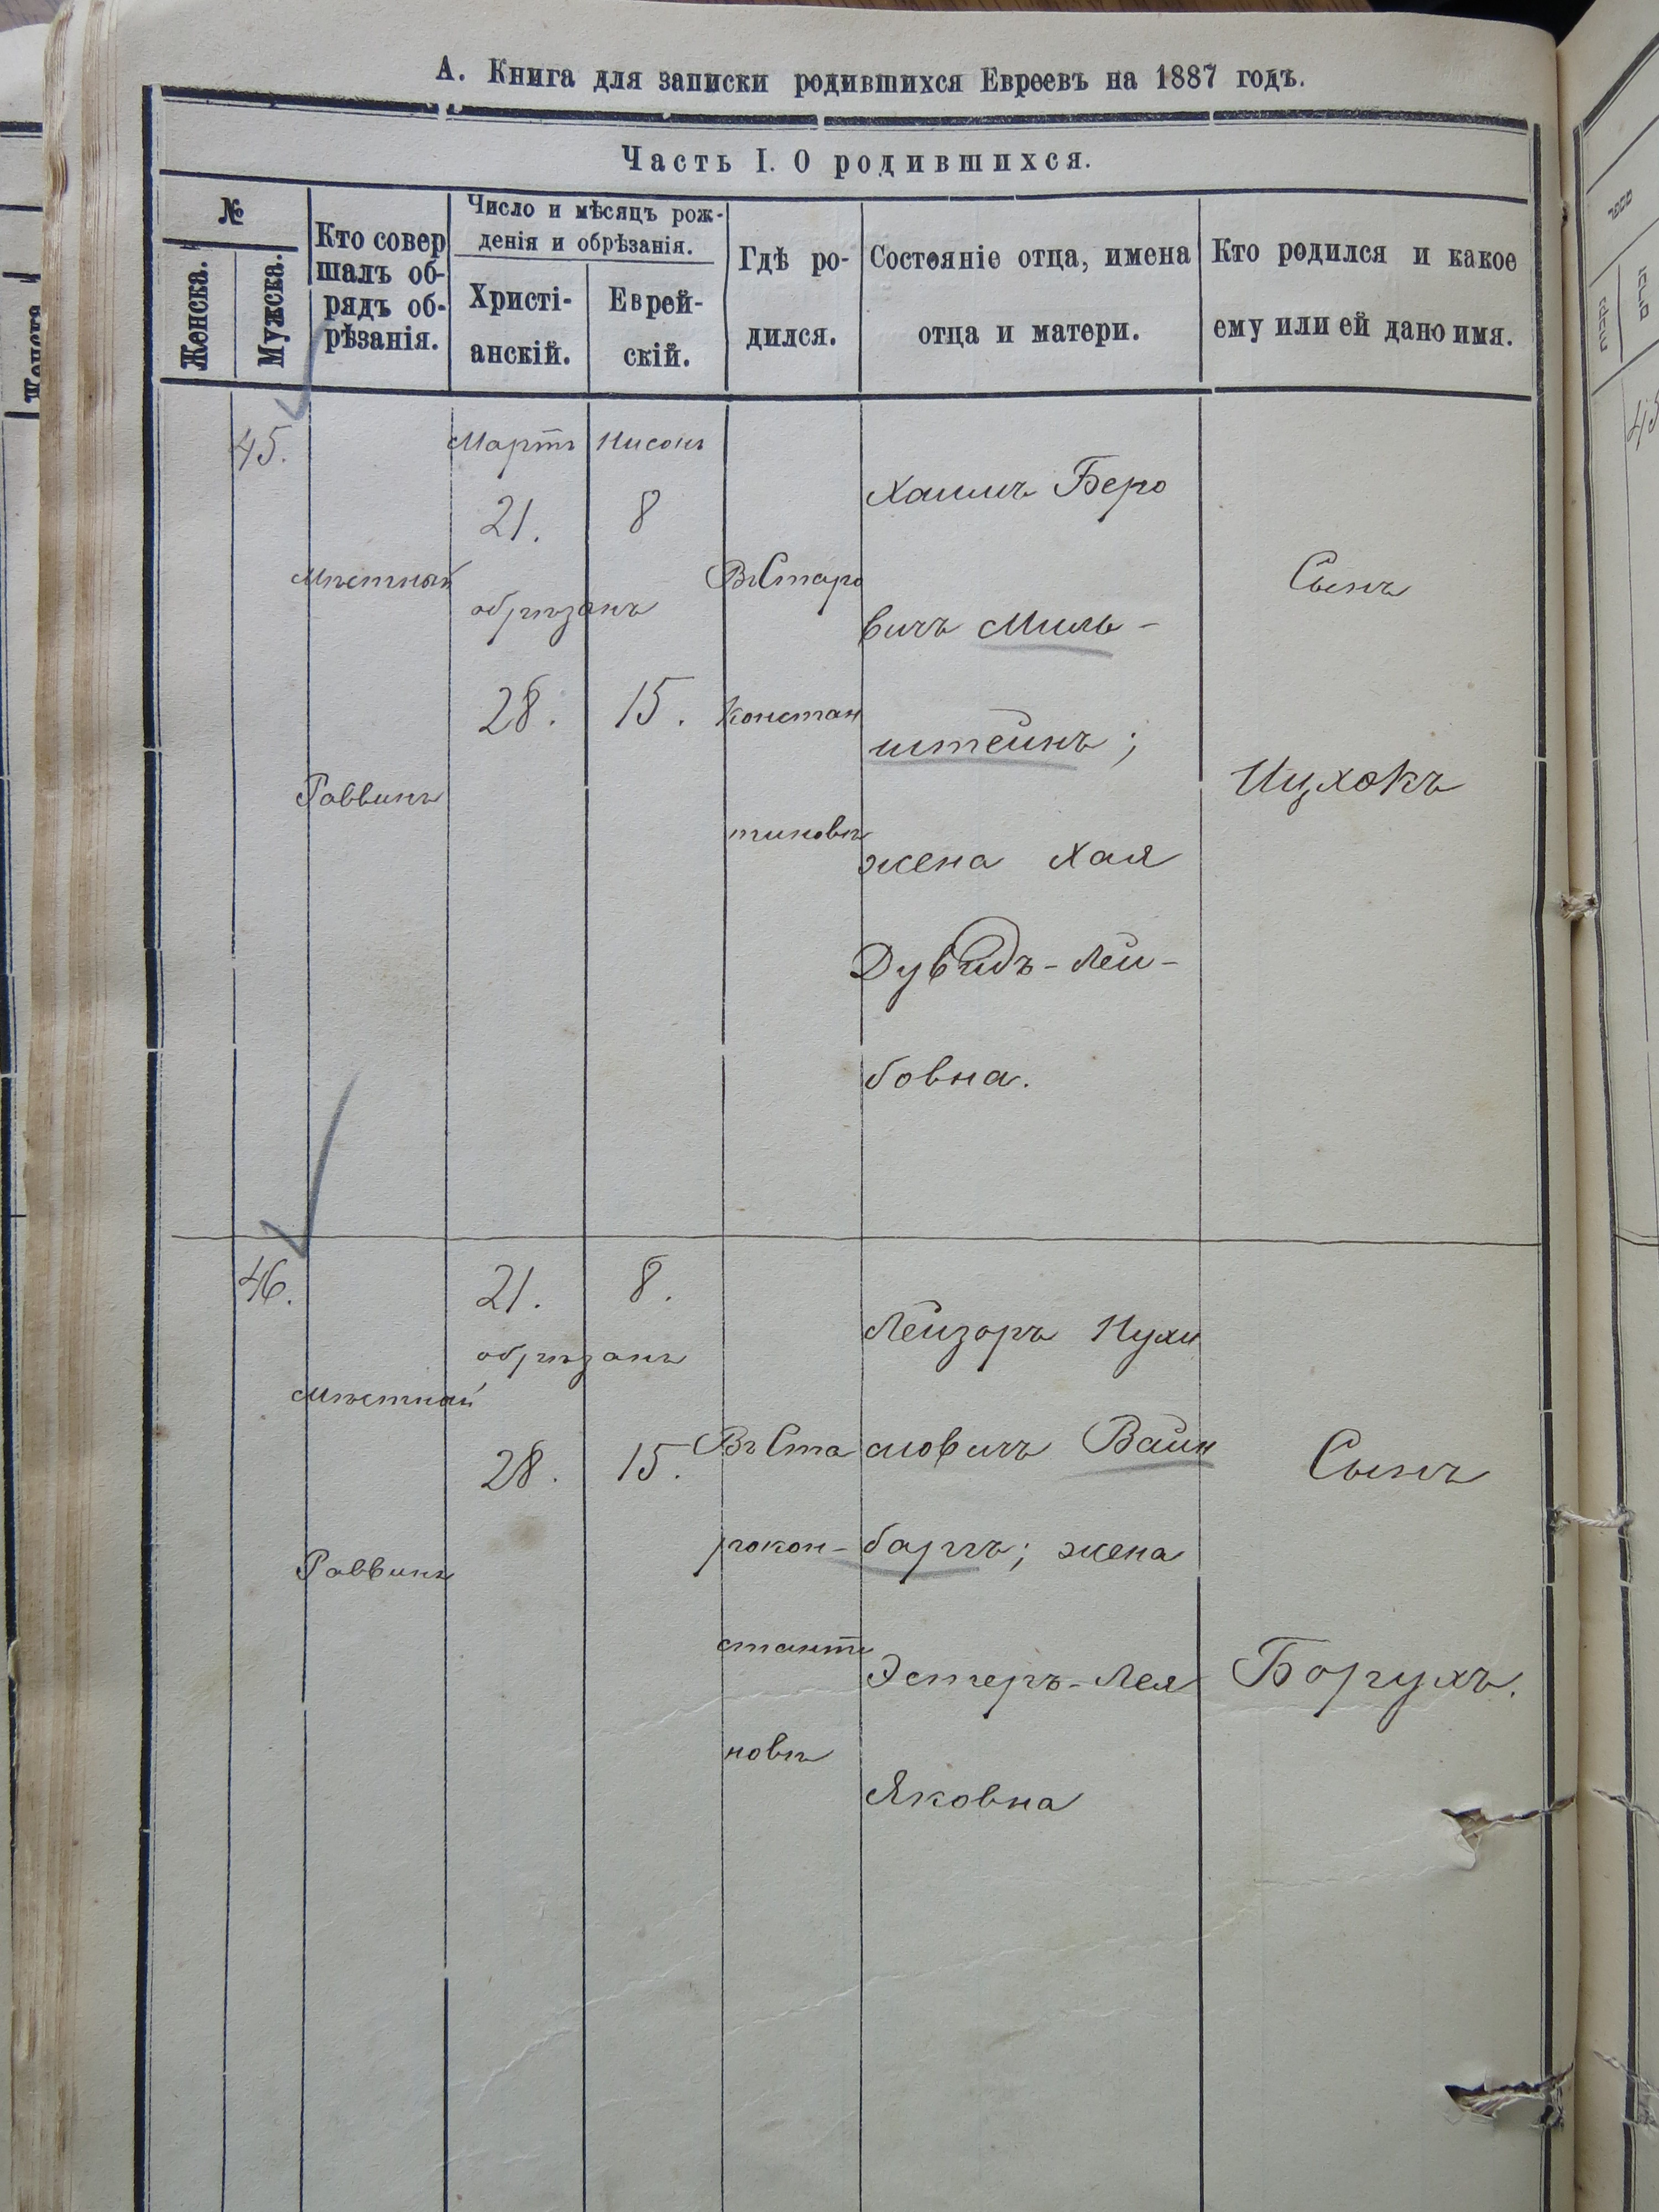 А. Книга для записки родившихся Евреевъ на 1887 годъ.
Часть I. О родившихся.
№
Женска.
Мужска.
Кто совер
шалъ об-
рядъ об-
рѣзанія.
Число и мѣсяцъ рож-
денія и обрѣзанія.
Христі-
анскій.
Еврей-
скій.
Гдѣ ро-
дился.
Состояніе отца, имена
отца и матери.
Кто родился и какое
ему или ей дано имя.
45.
Мѣстный
Раввинъ
Мартъ
Нисонъ
21.
8
обрѣзанъ
28.
15.
Въ Старо
констан
тиновѣ
Хаимъ Беро
вичъ Миль-
штейнъ;
жена Хая
Дувидъ-Лей-
бовна.
Сынъ
Ицхокъ
46.
Мѣстный
Раввинъ
21.
8.
обрѣзанъ
28.
15.
Въ Ста
рокон-
станти
новѣ
Лейзоръ Нухи
мовичъ Вайн
баргъ; жена
Эстеръ-Лея
Яковна
Сынъ
Борухъ.
45